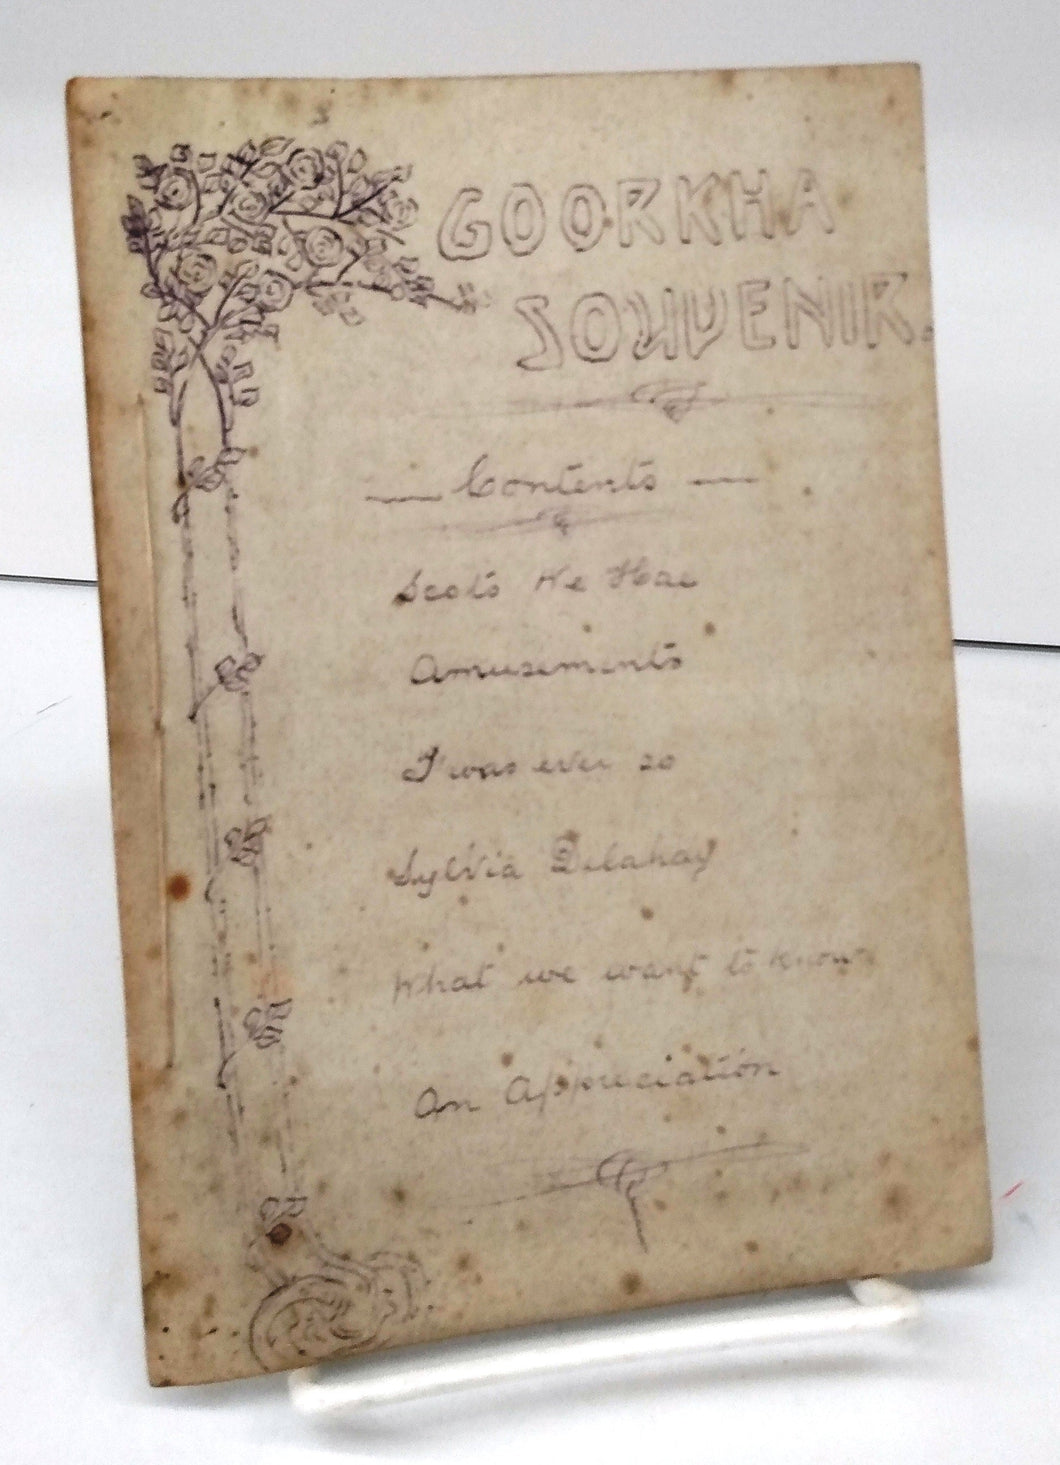 GOORKHA
SOUVENIR.
Contents
Scots We Hae
Amusements
T'was ever so
Sylvia Delahay
What we want to know
An Appreciation